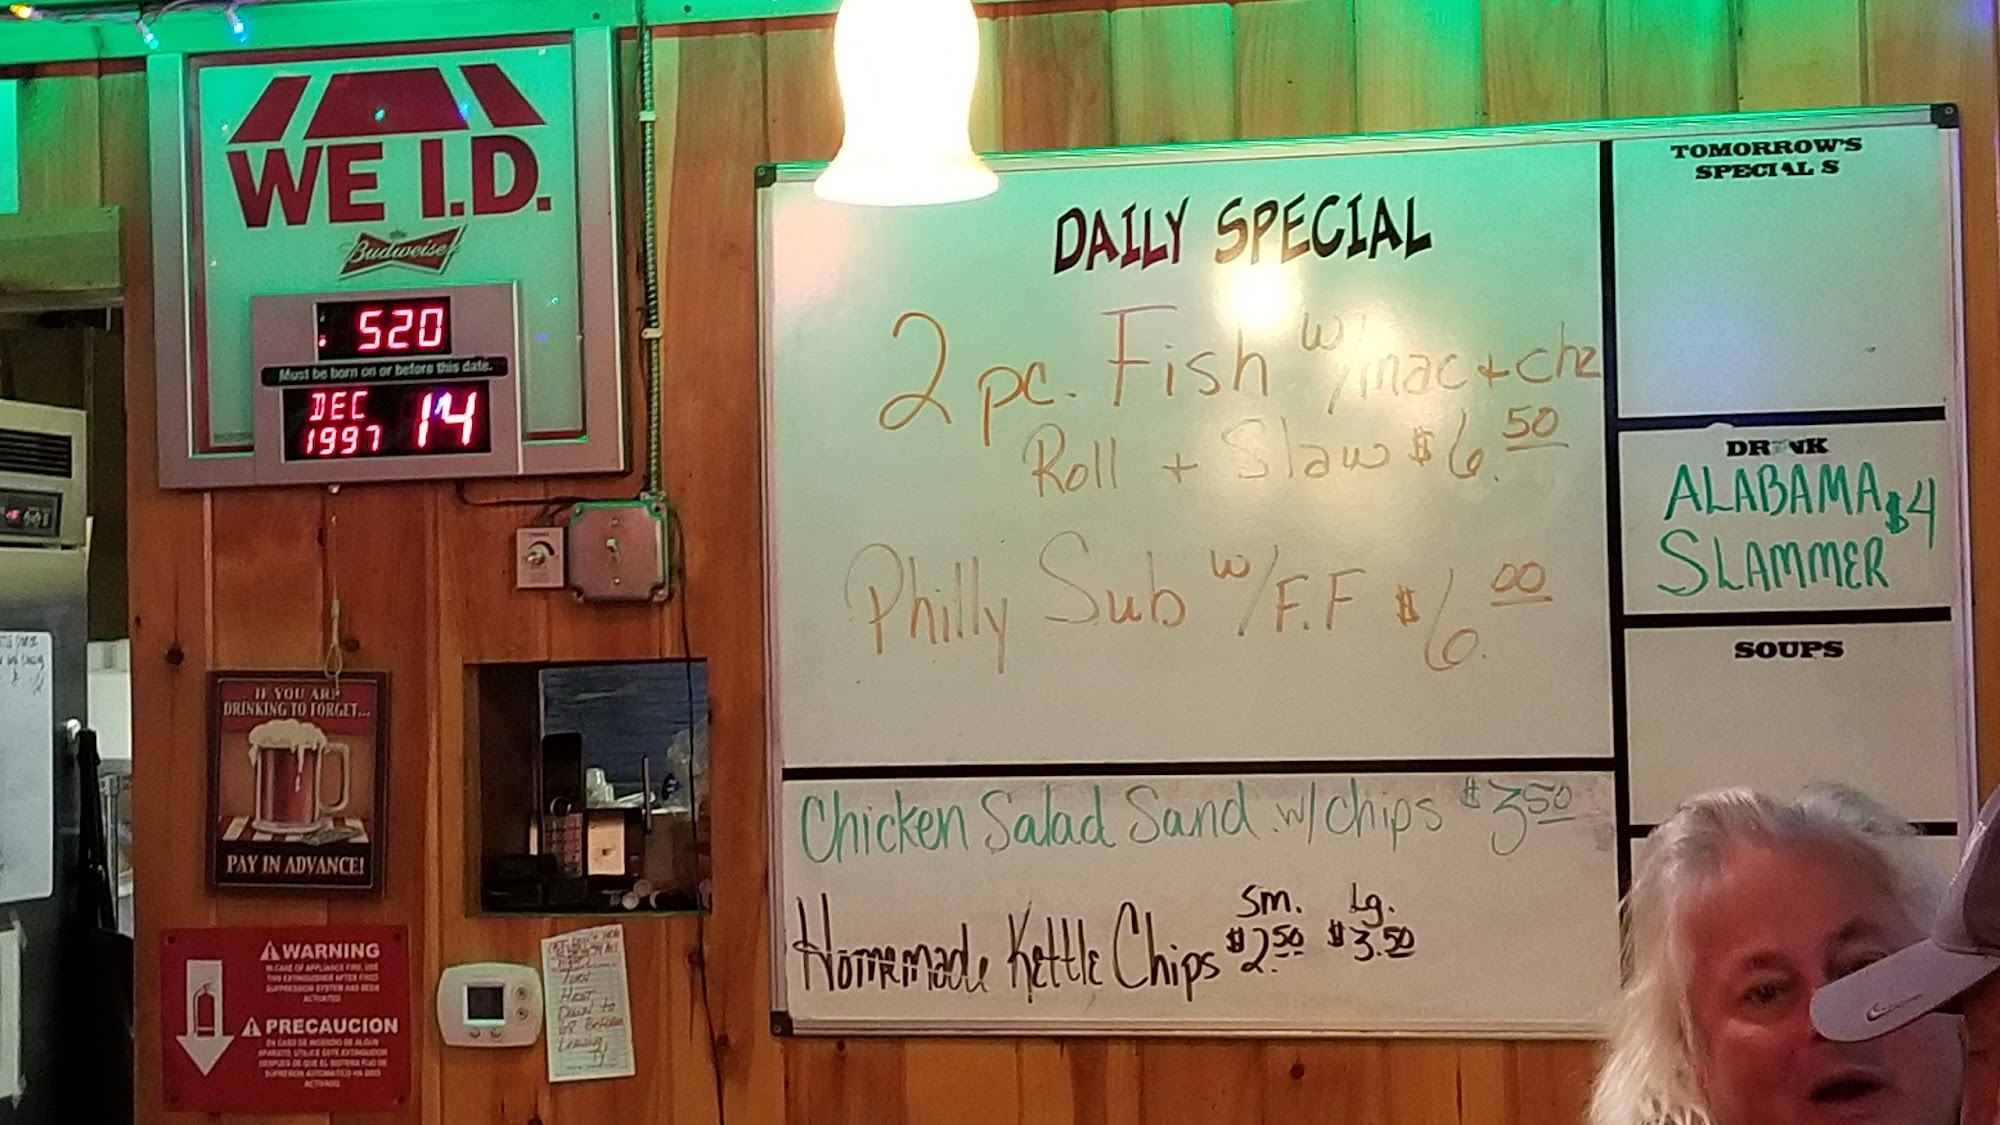 WE I.D.
Budweiser
520
Must be born on or before this date.
DEC 14
1997
IF YOU ARE
DRINKING TO FORGET...
PAY IN ADVANCE!
WARNING
IN CASE OF APPLIANCE FIRE, USE
THIS EXTINGUISHER AFTER FIXED
SUPPRESSION SYSTEM HAS BEEN
ACTUATED
PRECAUCION
EN CASO DE INCENDIO DE ALGUN
APARATO, UTILICE ESTE EXTINGUIDOR
DESPUES DE QUE EL SISTEMA FIJO DE
SUPRESION AUTOMATICO HA SIDO
ACTIVADO
Turn
Heat
Down to
68 Before
Leaving,
DAILY SPECIAL
2 pc. Fish w/mac + chz
Roll + Slaw $6.50
Philly Sub w/F.F $6.00
Chicken Salad Sand. w/chips $3.50
Sm. Lg.
Homemade Kettle Chips $2.50 $3.50
TOMORROW'S
SPECIALS
DRINK
ALABAMA $4
SLAMMER
SOUPS